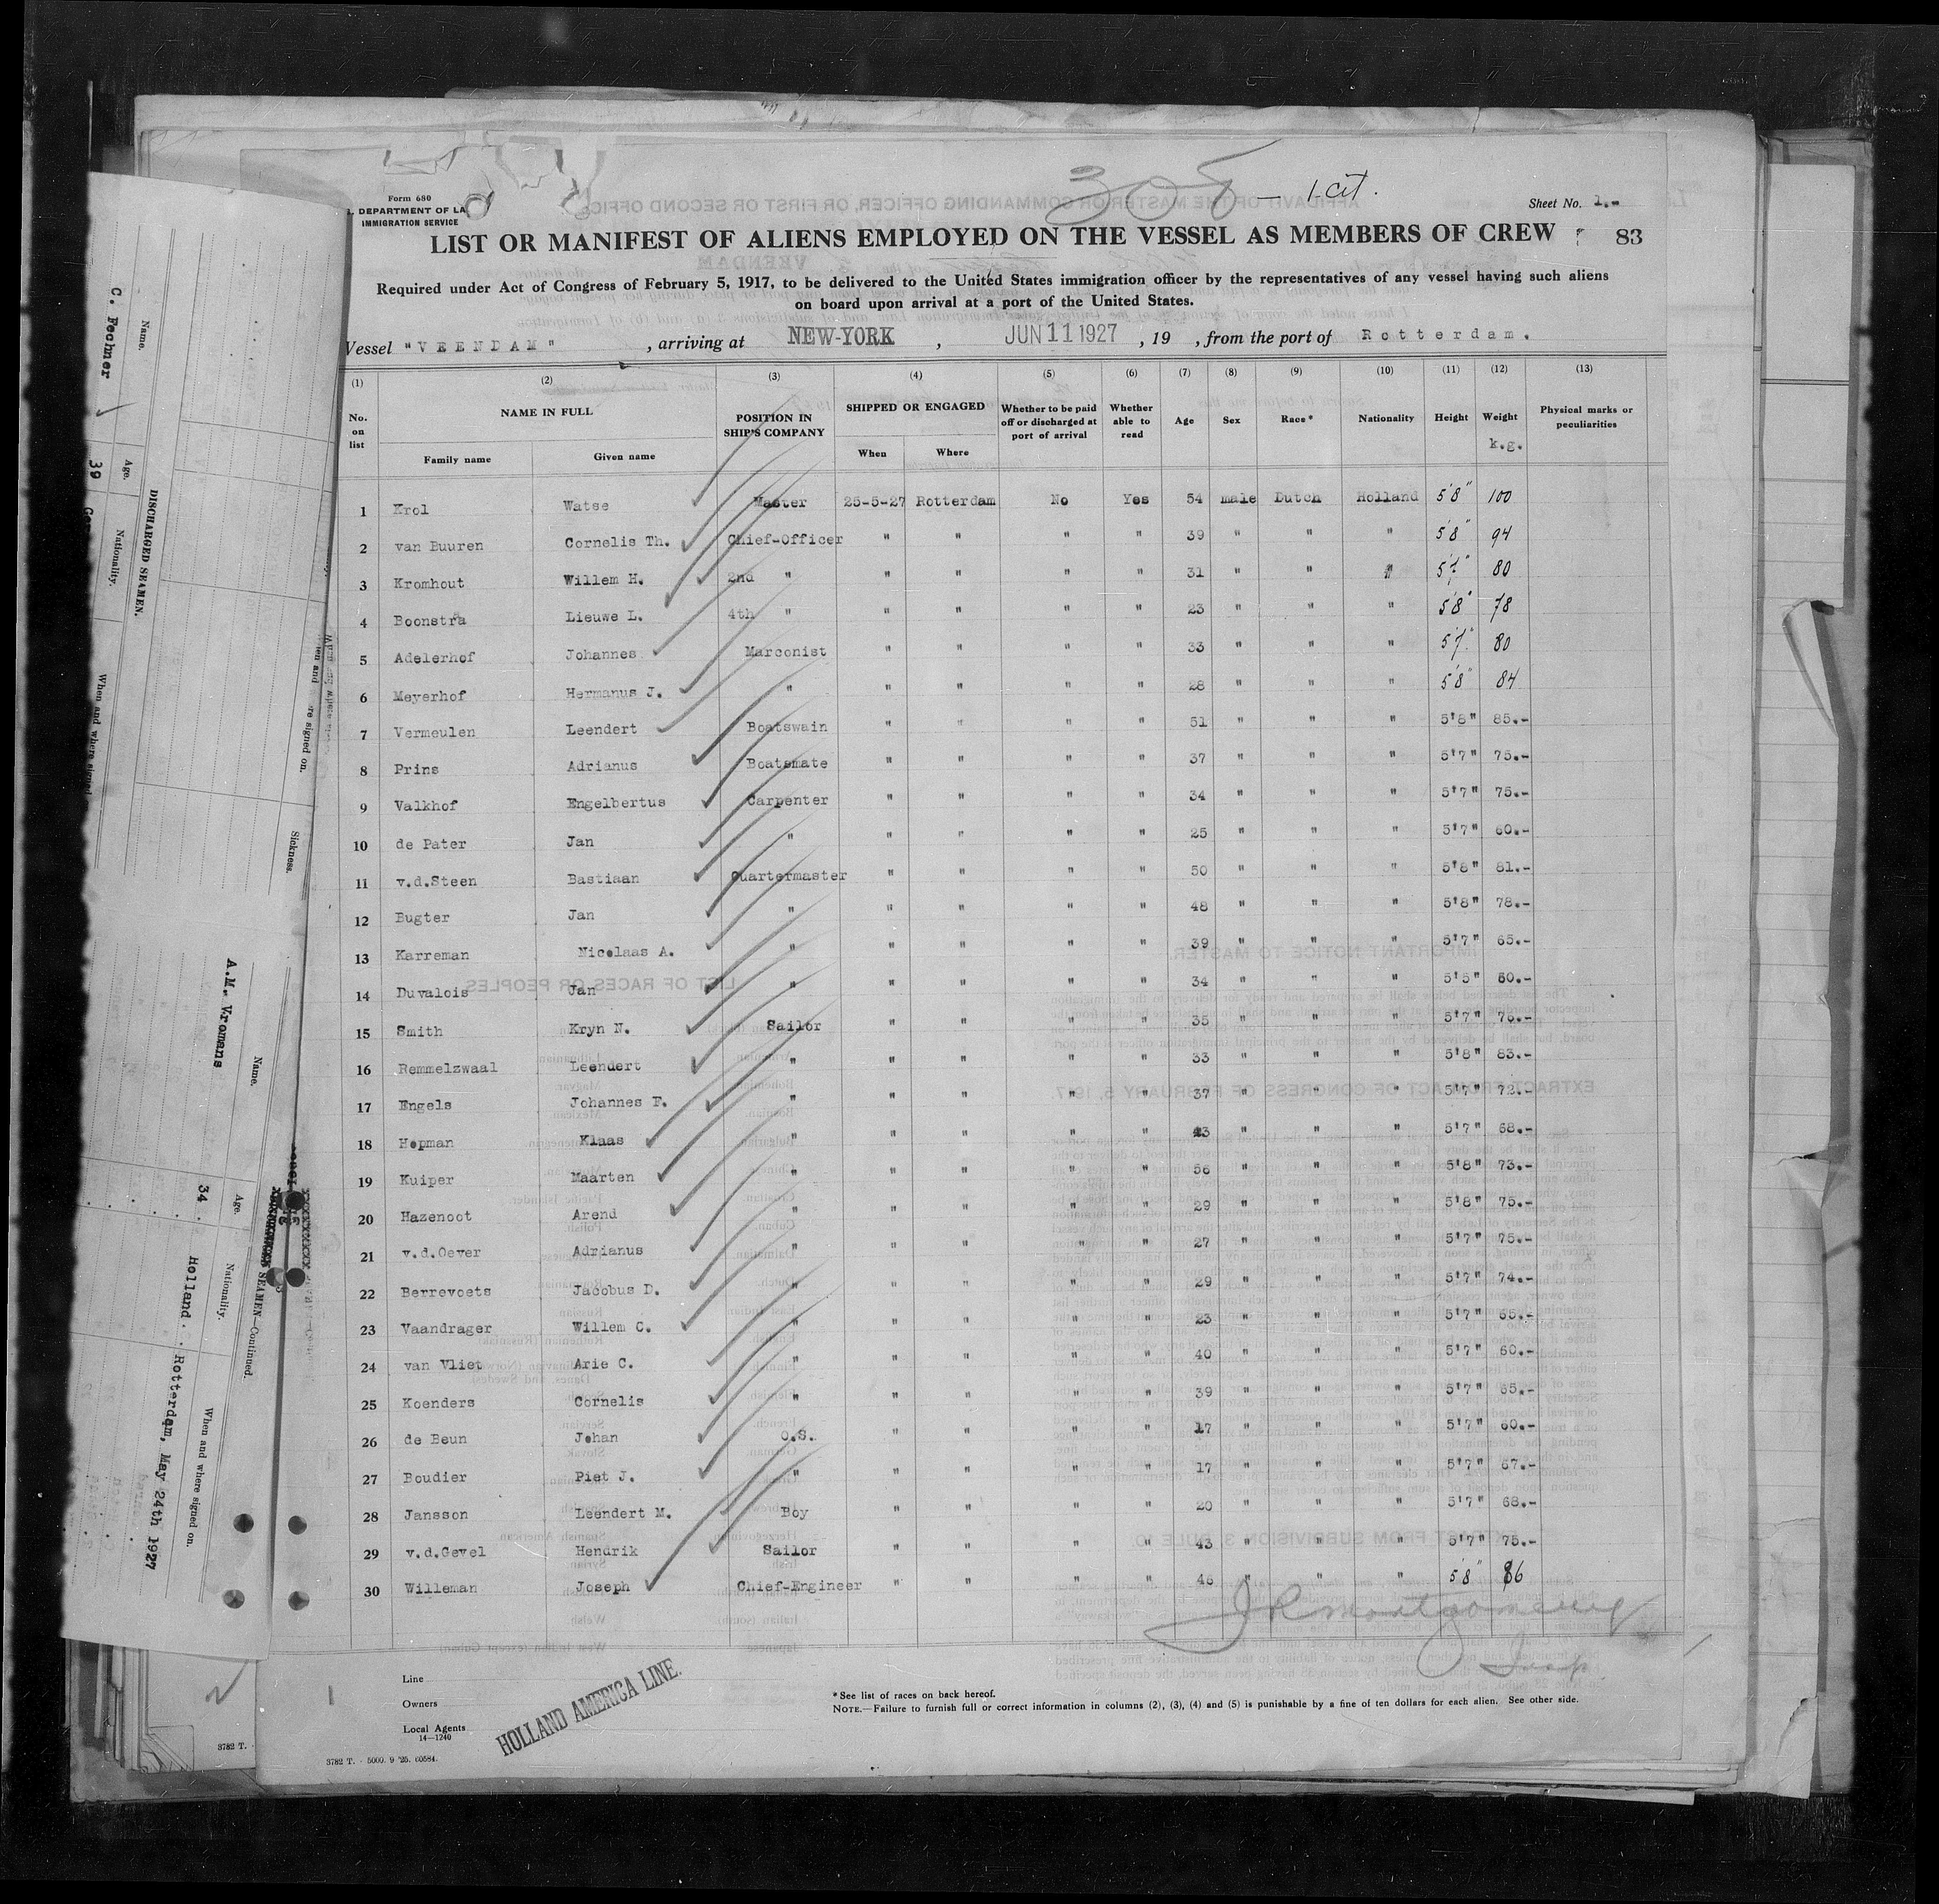 308 - 1 cit.
Form 680
DEPARTMENT OF LA
IMMIGRATION SERVICE
Sheet No. 1.-
LIST OR MANIFEST OF ALIENS EMPLOYED ON THE VESSEL AS MEMBERS OF CREW
83
Required under Act of Congress of February 5, 1917, to be delivered to the United States immigration officer by the representatives of any vessel having such aliens
on board upon arrival at a port of the United States.
Vessel "VEENDAM" , arriving at NEW-YORK , JUN 11 1927 , 19 , from the port of Rotterdam.
(1) (2) (3) (4) (5) (6) (7) (8) (9) (10) (11) (12) (13)
No. on list NAME IN FULL Family name Given name POSITION IN SHIP'S COMPANY SHIPPED OR ENGAGED When Where Whether to be paid off or discharged at port of arrival Whether able to read Age Sex Race* Nationality Height Weight k.g. Physical marks or peculiarities
1 Krol Watse Master 25-5-27 Rotterdam No Yes 54 male Dutch Holland 5'8" 100
2 van Buuren Cornelis Th. Chief-Officer " " " " 39 " " " 5'8" 94
3 Kromhout Willem H. 2nd " " " " " 31 " " " 80
4 Boonstra Lieuwe L. 4th " " " " " 23 " " " 5'8" 78
5 Adelerhof Johannes Marconist " " " " 33 " " " 5'7" 80
6 Meyerhof Hermanus J. " " " " " 28 " " " 5'8" 84
7 Vermeulen Leendert Boatswain " " " " 51 " " " 5'8" 85.-
8 Prins Adrianus Boatsmate " " " " 37 " " " 5'7" 75.-
9 Valkhof Engelbertus Carpenter " " " " 34 " " " 5'7" 75.-
10 de Pater Jan " " " " " 25 " " " 5'7" 60.-
11 v.d.Steen Bastiaan Quartermaster " " " " 50 " " " 5'8" 81.-
12 Bugter Jan " " " " " 48 " " " 5'8" 78.-
13 Karreman Nicolaas A. " " " " " 39 " " " 5'7" 65.-
14 Duvalois Jan " " " " " 34 " " " 5'5" 60.-
15 Smith Kryn N. Sailor " " " " 35 " " " 5'7" 75.-
16 Remmelzwaal Leendert " " " " " 33 " " " 5'8" 83.-
17 Engels Johannes F. " " " " " 37 " " " 5'7" 72.-
18 Hopman Klaas " " " " " " " " 5'7" 68.-
19 Kuiper Maarten " " " " " 56 " " " 5'8" 73.-
20 Hazenoot Arend " " " " " 29 " " " 5'8" 75.-
21 v.d.Oever Adrianus " " " " " 27 " " " 5'7" 75.-
22 Berrevoets Jacobus D. " " " " " 29 " " " 5'7" 74.-
23 Vaandrager Willem C. " " " " " 23 " " " 5'7" 65.-
24 van Vliet Arie C. " " " " " 40 " " " 5'7" 60.-
25 Koenders Cornelis " " " " " 39 " " " 5'7" 65.-
26 de Beun Johan O.S. " " " " 17 " " " 5'7" 60.-
27 Boudier Piet J. " " " " " 17 " " " 5'7" 67.-
28 Jansson Leendert M. Boy " " " " 20 " " " 5'7" 68.-
29 v.d.Gevel Hendrik Sailor " " " " 43 " " " 5'7" 75.-
30 Willeman Joseph Chief-Engineer " " " " 46 " " " 5'8" 86
J R Montgomery
Insp.
Line
Owners
Local Agents
14-1240
HOLLAND AMERICA LINE.
*See list of races on back hereof.
NOTE.—Failure to furnish full or correct information in columns (2), (3), (4) and (5) is punishable by a fine of ten dollars for each alien. See other side.
3782 T. - 5000. 9 '25. 60584.
3782 T.
DISCHARGED SEAMEN.
Name. Age. Nationality. When and where signed Sickness.
C. Fechner 39
SEAMEN—Continued.
Name. Age. Nationality. When and where signed on.
A.M. Vromans 34 Holland Rotterdam, May 24th 1927